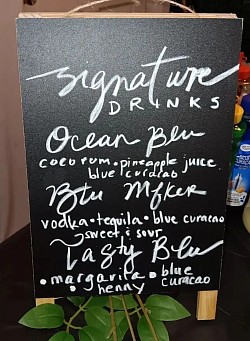 Signature
DRINKS
Ocean Blu
coco rum • pineapple juice
blue curacao
Blu Mfker
vodka • tequila • blue curacao
sweet & sour
Tasty Blu
• margarita • blue
• henny curacao